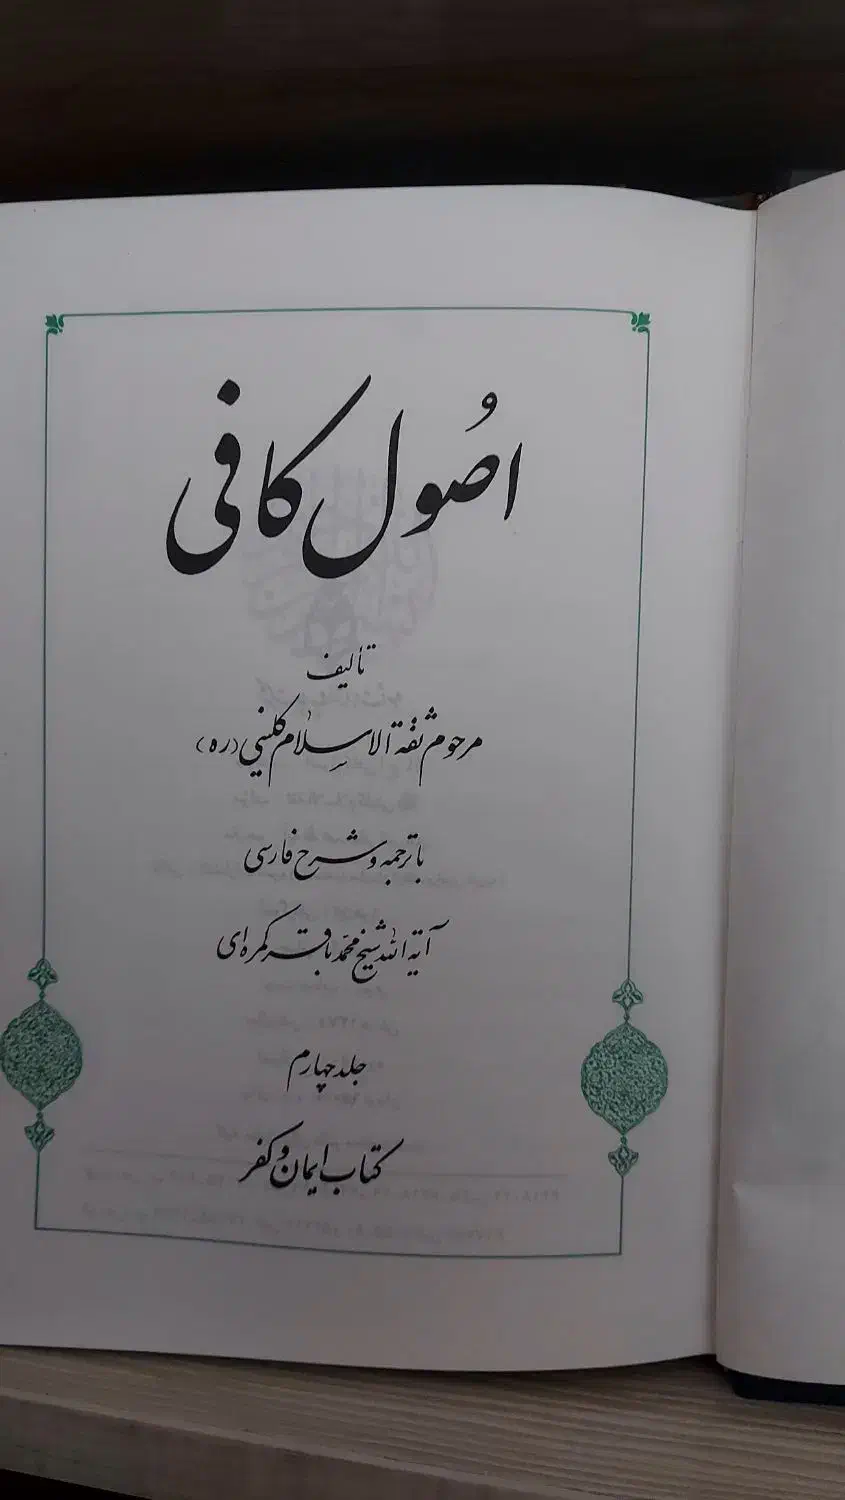 اصُول کافی
تألیف
مرحوم ثقة الاسلام کلینی (ره)
با ترجمه و شرح فارسی
آیة الله شیخ محمّد باقر کمره‌ای
جلد چهارم
کتاب ایمان و کفر